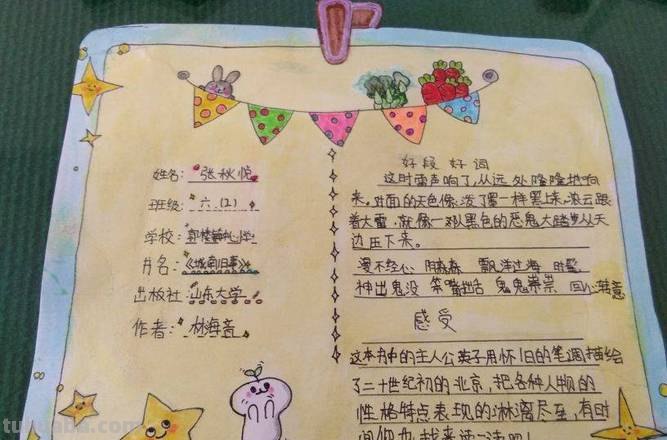 姓名:张秋悦
班级:六.(2)
学校:
书名:《城南旧事》
出版社:山东大学
作者:林海音
好段 好词
这时雷声响了,从远处隆隆地响
来,对面的天色像泼了墨一样黑上来,浓云跟
着大雷,就像一队黑色的恶鬼大踏步从天
边压下来。
漫不经心 阴森森 飘洋过海
神出鬼没 笨嘴拙舌 鬼鬼祟祟 回心转意
感受
这本书中的主人公英子用怀旧的笔调描绘
了二十世纪初的北京,把各种人物的
性格特点表现的淋漓尽至,有时
tuxiaba.com